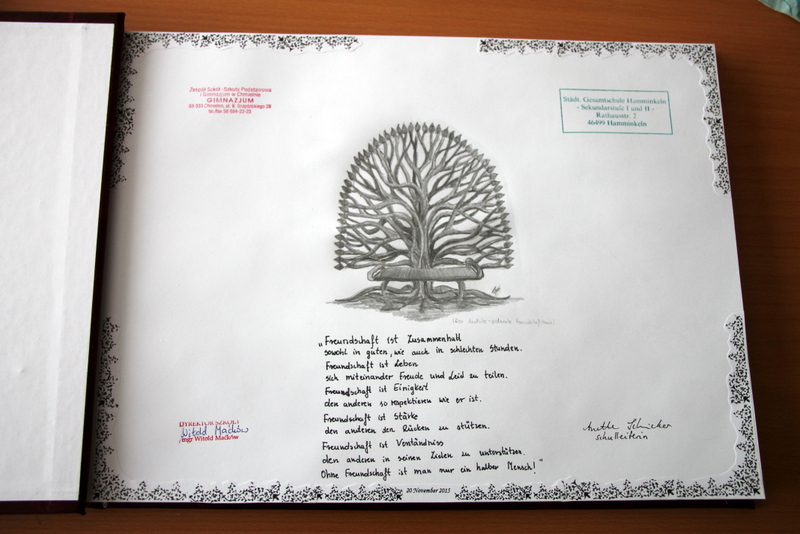 Zespół Szkół -Szkoły Podstawowa
i Gimnazjum w Chmielnie
GIMNAZJUM
tel./fax 58 684-22-23
Städt. Gesamtschule Hamminkeln
- Sekundarstufe I und II -
Rathausstr. 2
46499 Hamminkeln
„Freundschaft ist Zusammenhalt
sowohl in guten, wie auch in schlechten Stunden.
Freundschaft ist Leben
sich miteinander Freude und Leid zu teilen.
Freundschaft ist Einigkeit
den anderen so respektieren wie er ist.
Freundschaft ist Stärke
den anderen den Rücken zu stützen.
Freundschaft ist Verständniss
den anderen in seinen Zielen zu unterstützen.
Ohne Freundschaft ist man nur ein halber Mensch!“
DYREKTOR SZKOŁY
Witold Maćków
mgr Witold Maćków
Schulleiterin
20 November 2015